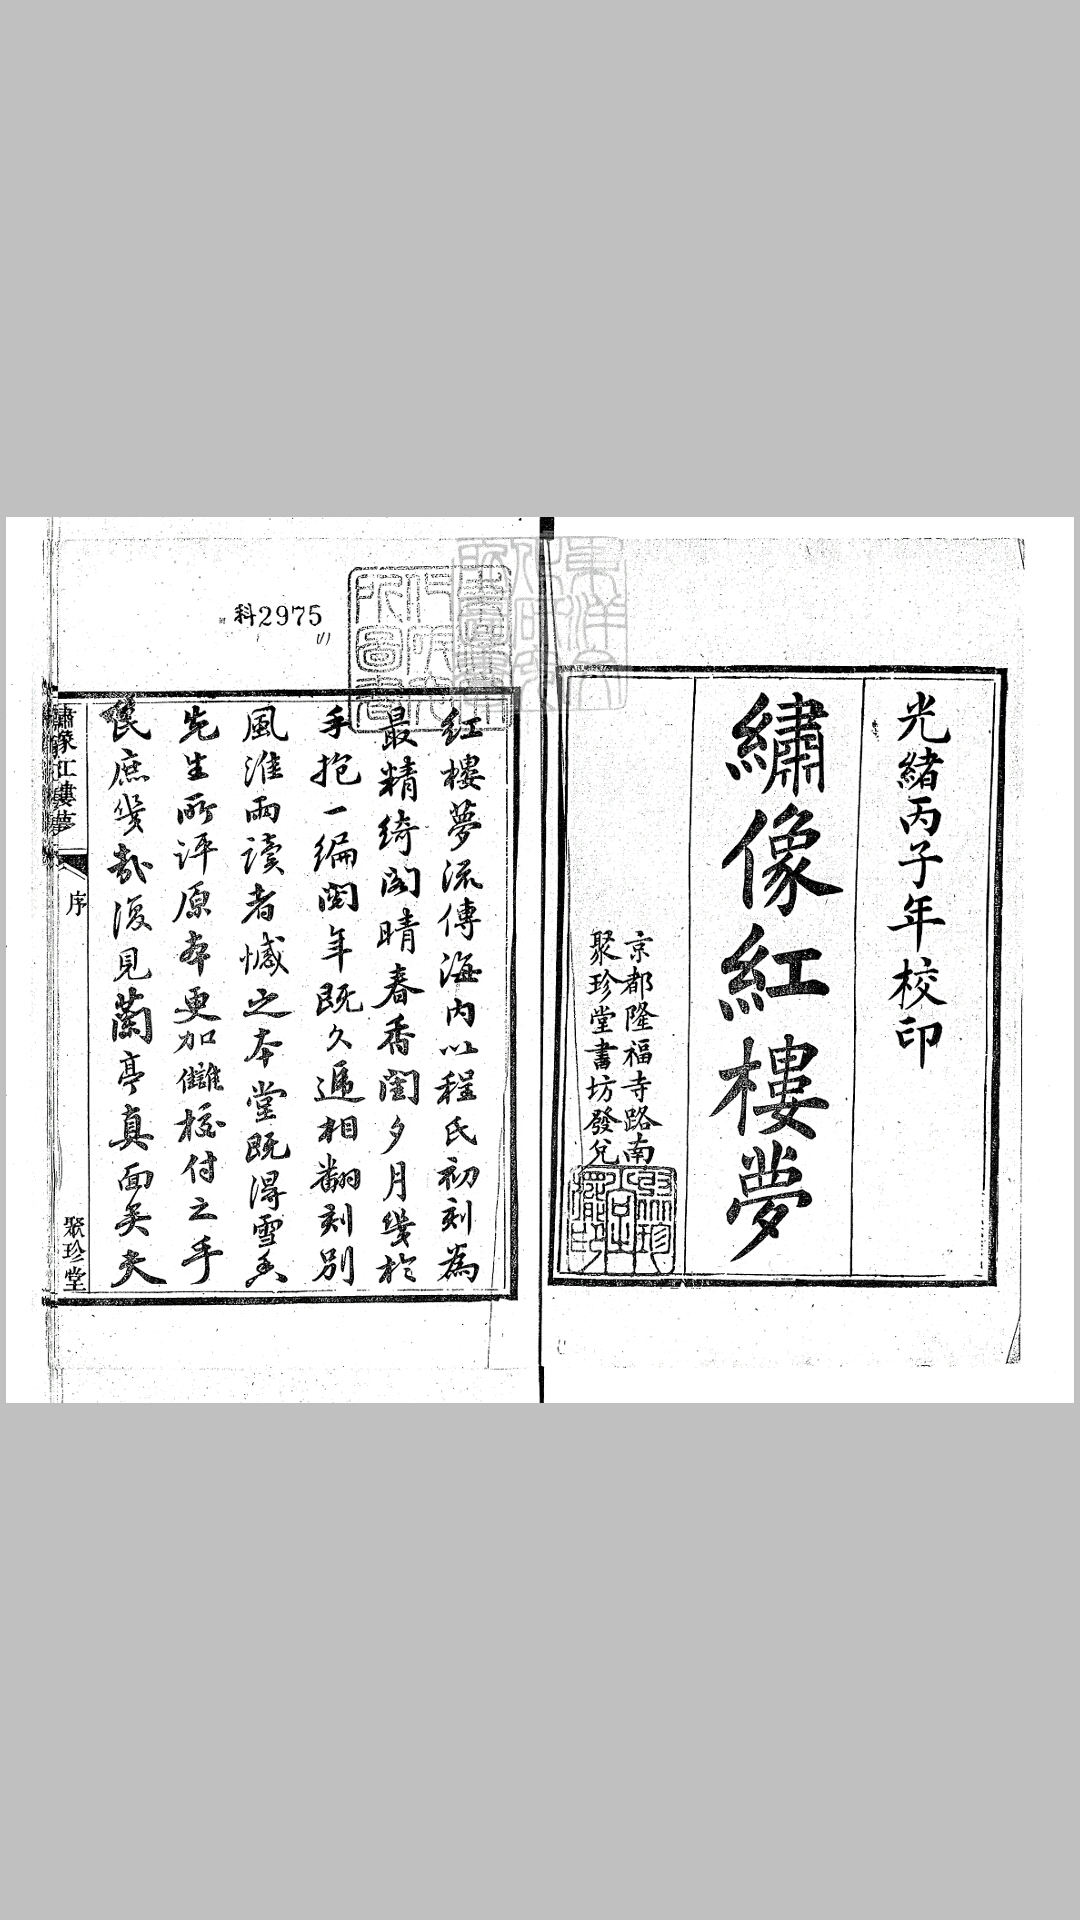 光緒丙子年校印
繡像紅樓夢
京都隆福寺路南
聚珍堂書坊發兌
科2975
(1)
紅樓夢流傳海內以程氏初刻為
最精綺閣晴春香閨夕月幾於
手抱一編閱年既久遞相翻刻別
風淮雨讀者憾之本堂既得雪香
先生所評原本更加讎校付之手
民庶幾哉復見蘭亭真面矣夫
繡像紅樓夢
序
聚珍堂